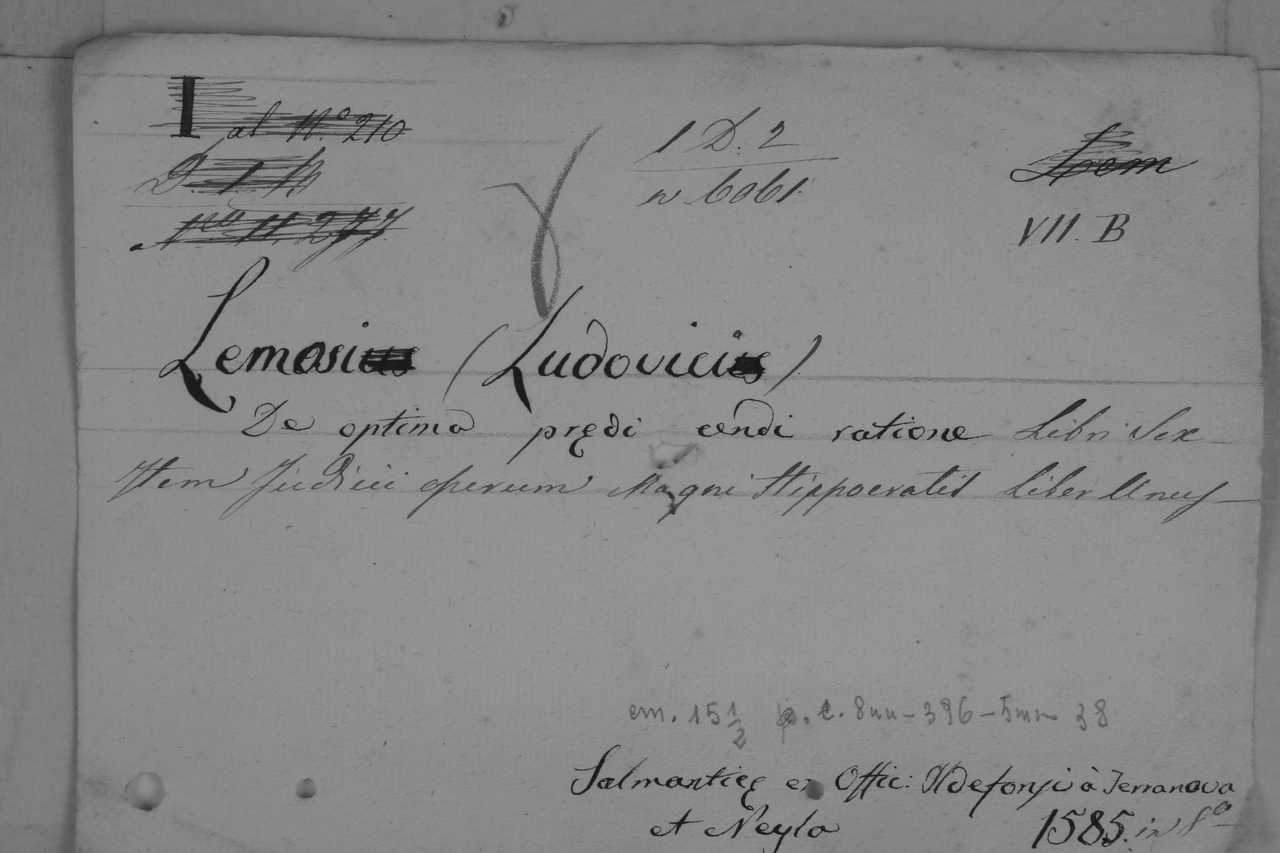 I al N.º 210
1 D. 2
Lem
n 6061
Nu 11. 277
VII. B
Lemosi (Ludovici)
De optima prędi cendi ratione Libri Sex
Item Judicii operum Magni Hippocratis liber Unus
cm. 15 1/2 p. c. 8nn - 396 - 5nn 38
Salmanticę ex Offic: Ildefonsi à Terranova
et Neyla 1585. in 8º